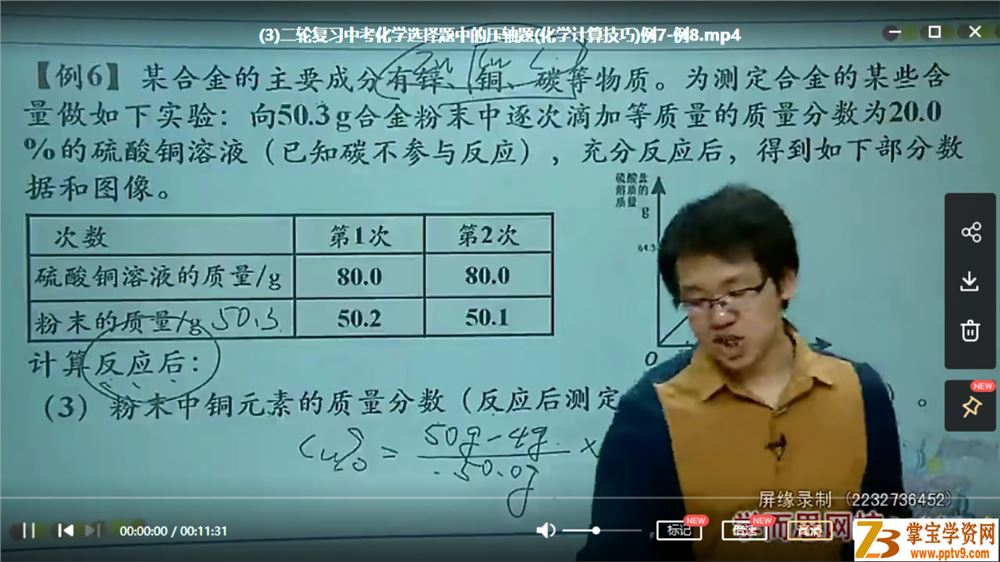 (3)二轮复习中考化学选择题中的压轴题(化学计算技巧)例7-例8.mp4
【例6】某合金的主要成分有锌、铜、碳等物质。为测定合金的某些含
量做如下实验：向50.3g合金粉末中逐次滴加等质量的质量分数为20.0
%的硫酸铜溶液（已知碳不参与反应），充分反应后，得到如下部分数
据和图像。
次数 第1次 第2次
硫酸铜溶液的质量/g 80.0 80.0
粉末的质量/g 50.3 50.2 50.1
硫酸盐
溶质的
质量
g
64.3
O
计算反应后：
(3) 粉末中铜元素的质量分数（反应后测定
）。
Cu% = 50g-4g / 50.0g ×
NEW
屏缘录制（2232736452）
00:00:00 / 00:11:31
标记 NEW
倍速 NEW
高清
学而思网校
掌宝学资网
www.pptv9.com